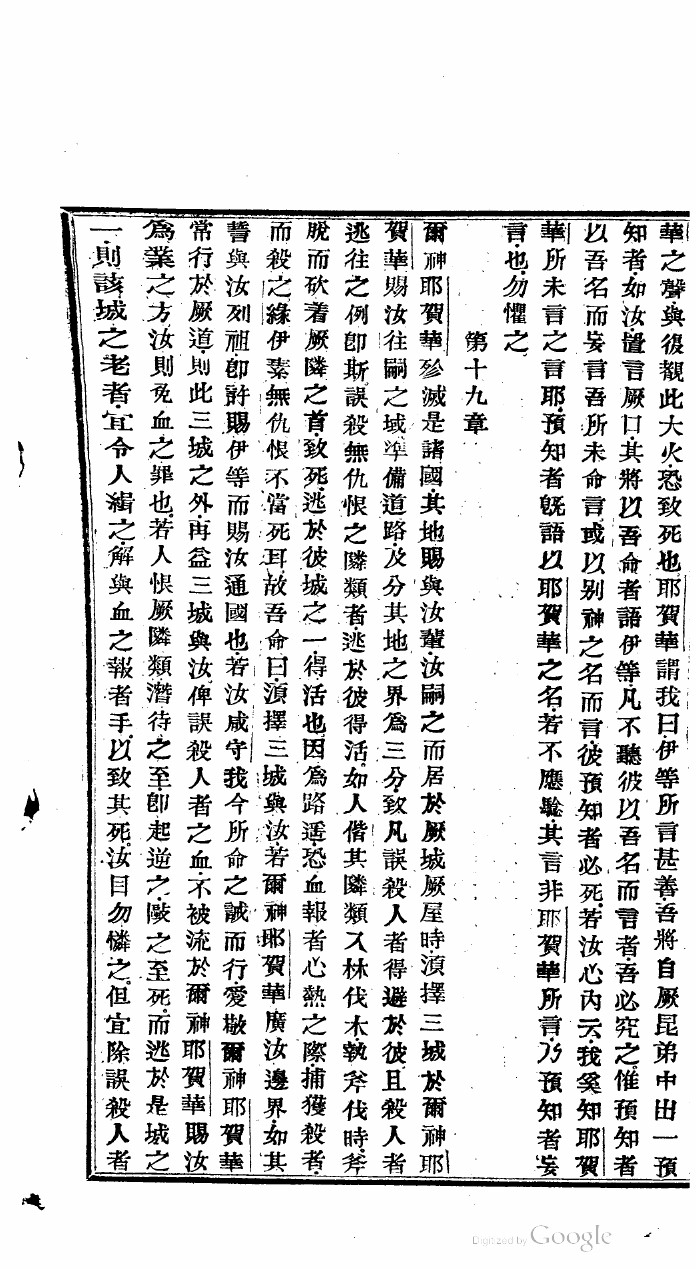 華之聲與復覩此大火恐致死也耶賀華謂我曰伊等所言甚善吾將自厥昆弟中出一預
知者如汝置言厥口其將以吾命者語伊等凡不聽彼以吾名而言者吾必究之惟預知者
以吾名而妄言吾所未命言或以别神之名而言彼預知者必死若汝心內云我奚知耶賀
華所未言之言耶預知者旣語以耶賀華之名若不應騐其言非耶賀華所言乃預知者妄
言也勿懼之
第十九章
爾神耶賀華殄滅是諸國其地賜與汝輩汝嗣之而居於厥城厥屋時湏擇三城於爾神耶
賀華賜汝往嗣之域凖備道路及分其地之界爲三分致凡誤殺人者得避於彼且殺人者
逃往之例卽斯誤殺無仇恨之隣類者逃於彼得活如人偕其隣類入林伐木執斧伐時斧
脫而砍着厥隣之首致死逃於彼城之一得活也因爲路遥恐血報者心熱之際捕獲殺者
而殺之緣伊素無仇恨不當死耳故吾命曰湏擇三城與汝若爾神耶賀華廣汝邊界如其
誓與汝列祖卽許賜伊等而賜汝通國也若汝咸守我今所命之誡而行愛敬爾神耶賀華
常行於厥道則此三城之外再益三城與汝俾誤殺人者之血不被流於爾神耶賀華賜汝
爲業之方汝則免血之罪也若人恨厥隣類潛待之至卽起逆之毆之至死而逃於是城之
一則該城之老者宜令人緝之解與血之報者手以致其死汝目勿憐之但宜除誤殺人者
Digitized by Google